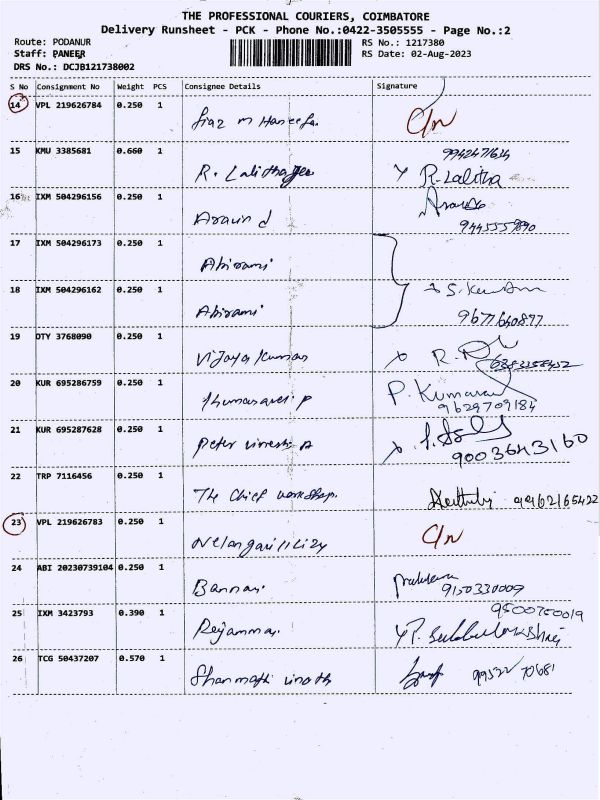 THE PROFESSIONAL COURIERS, COIMBATORE
Delivery Runsheet - PCK - Phone No.:0422-3505555 - Page No.:2
Route: PODANUR RS No.: 1217380
Staff: PANEER RS Date: 02-Aug-2023
DRS No.: DCJB121738002
S No Consignment No Weight PCS Consignee Details Signature
14 VPL 219626784 0.250 1
m Haneefa C/n
15 KMU 3385681 0.660 1
R. Lalitha R. Lalitha
16 IXM 504296156 0.250 1
Aravind
17 IXM 504296173 0.250 1
Abirami
18 IXM 504296162 0.250 1
Abirami 9677640877
19 DTY 3768090 0.250 1
Vijaya kumar R.
20 KUR 695286759 0.250 1 P. Kumaran
p 9629709184
21 KUR 695287628 0.250 1
Peter A 9003643160
22 TRP 7116456 0.250 1
The Chief workshop. 9962165422
23 VPL 219626783 0.250 1
C/n
24 ABI 20230739104 0.250 1
Bannari 9150330009
25 IXM 3423793 0.390 1 9500750019
Rejammai
26 TCG 50437207 0.570 1
Shanmathi vinoth 99522 70681